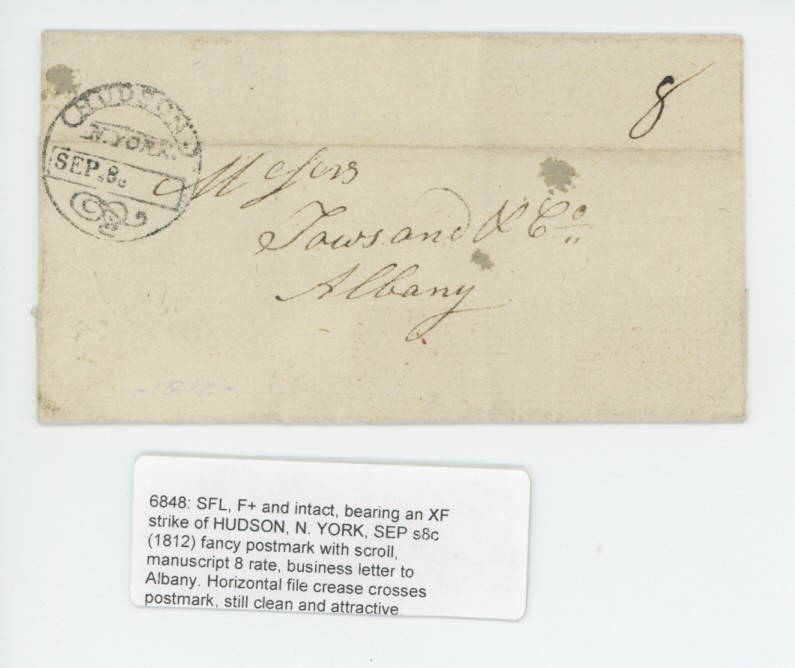 HUDSON
N.YORK.
SEP.s8c
8
Messors
Towsand & Co
Albany
-1812-
6848: SFL, F+ and intact, bearing an XF
strike of HUDSON, N. YORK, SEP s8c
(1812) fancy postmark with scroll,
manuscript 8 rate, business letter to
Albany. Horizontal file crease crosses
postmark, still clean and attractive.